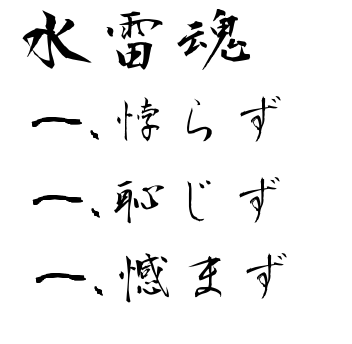 水雷魂
一、悖らず
一、恥じず
一、憾まず